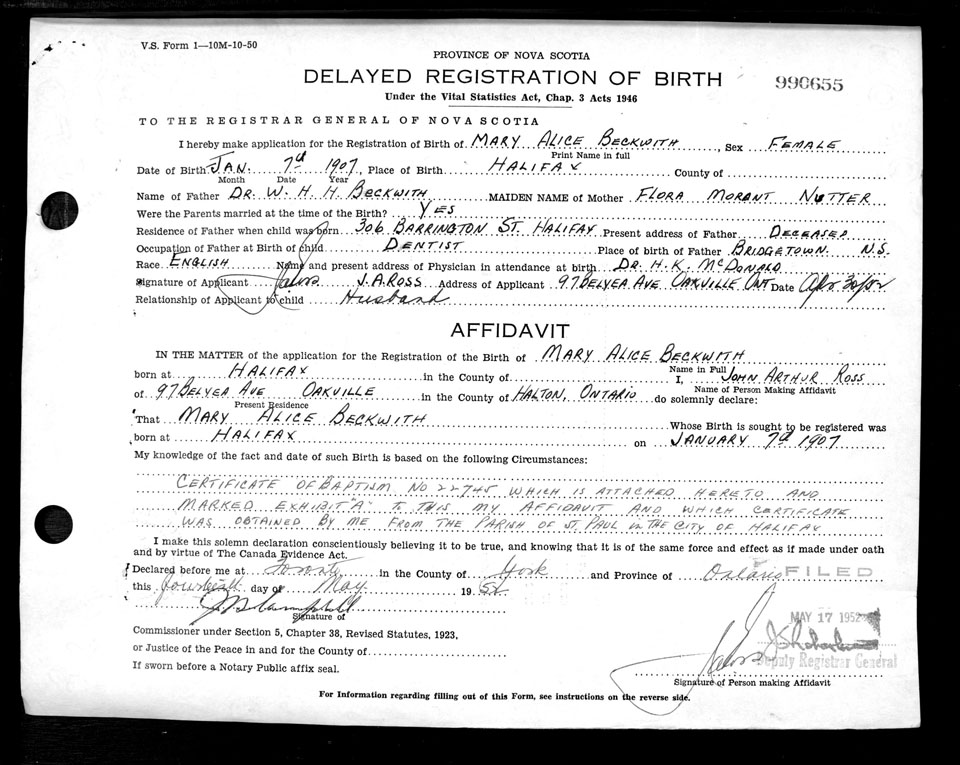 V.S. Form 1—10M-10-50
PROVINCE OF NOVA SCOTIA
DELAYED REGISTRATION OF BIRTH
990655
Under the Vital Statistics Act, Chap. 3 Acts 1946
TO THE REGISTRAR GENERAL OF NOVA SCOTIA
I hereby make application for the Registration of Birth of MARY ALICE BECKWITH, Sex FEMALE
Print Name in full
Date of Birth JAN. 7th 1907, Place of Birth HALIFAX County of
Month Date Year
Name of Father DR. W. H. H. BECKWITH MAIDEN NAME of Mother FLORA MORANT NUTTER
Were the Parents married at the time of the Birth? YES
Residence of Father when child was born 306 BARRINGTON ST. HALIFAX Present address of Father DECEASED
Occupation of Father at Birth of child DENTIST Place of birth of Father BRIDGETOWN N.S.
Race ENGLISH Name and present address of Physician in attendance at birth DR. H. K. McDONALD
Signature of Applicant J. A. ROSS Address of Applicant 97 BELYEA AVE OAKVILLE ONT Date Apr 30/52
Relationship of Applicant to child Husband
AFFIDAVIT
IN THE MATTER of the application for the Registration of the Birth of MARY ALICE BECKWITH
Name in Full
born at HALIFAX in the County of I, JOHN ARTHUR ROSS
Name of Person Making Affidavit
of 97 BELYEA AVE OAKVILLE in the County of HALTON, ONTARIO do solemnly declare:
Present Residence
That MARY ALICE BECKWITH Whose Birth is sought to be registered was
born at HALIFAX on JANUARY 7th 1907
My knowledge of the fact and date of such Birth is based on the following Circumstances:
CERTIFICATE OF BAPTISM NO 22745 WHICH IS ATTACHED HERETO AND
MARKED EXHIBIT "A" TO THIS MY AFFIDAVIT AND WHICH CERTIFICATE
WAS OBTAINED BY ME FROM THE PARISH OF ST. PAUL IN THE CITY OF HALIFAX
I make this solemn declaration conscientiously believing it to be true, and knowing that it is of the same force and effect as if made under oath
and by virtue of The Canada Evidence Act.
Declared before me at Toronto in the County of York and Province of Ontario FILED
this fourteenth day of May 1952
MAY 17 1952
Signature of
Commissioner under Section 5, Chapter 38, Revised Statutes, 1923,
or Justice of the Peace in and for the County of
Deputy Registrar General
If sworn before a Notary Public affix seal.
Signature of Person making Affidavit
For Information regarding filling out of this Form, see instructions on the reverse side.